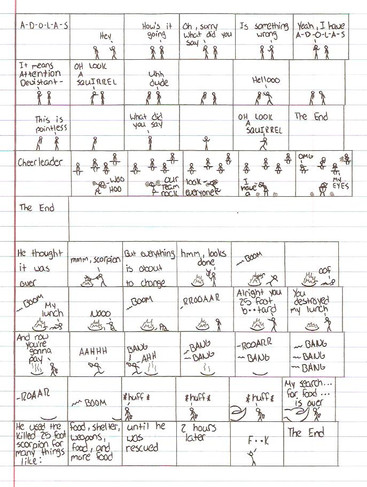 A-D-O-L-A-S
Hey
How's it
going
Oh, sorry
what did you
say
Is something
wrong
Yeah, I have
A-D-O-L-A-S
It means
Attention
Devistant-
OH LOOK
A
SQUIRREL
Uhh
dude
Hellooo
This is
pointless
What did
you say
OH LOOK
A
SQUIRREL
The End
Cheerleader
WOO
HOO
our
team
rock
look
everyone
I
have
a
OMG
MY
EYES
The End
He thought
it was
over
mmm, scorpion
But everything
is about
to change
hmm, looks
done
~BOOM
OOF
~BOOM
My
lunch
Nooo
~BOOM
~RROAAR
Alright you
25 foot
b**tard
You
destroyed
my lunch
And now
you're
gonna
pay
AAHHH
BANG
AHH
~BANG
~BANG
~ROOARR
~BANG
~BANG
~BANG
~BANG
~ROAAR
~BOOM
*huff*
*huff*
*huff*
My search...
for food...
is over
He used the
killed 25 foot
scorpion for
many things
like:
food, shelter,
weapons,
food, and
more food
until he
was
rescued
2 hours
later
F**k
The End